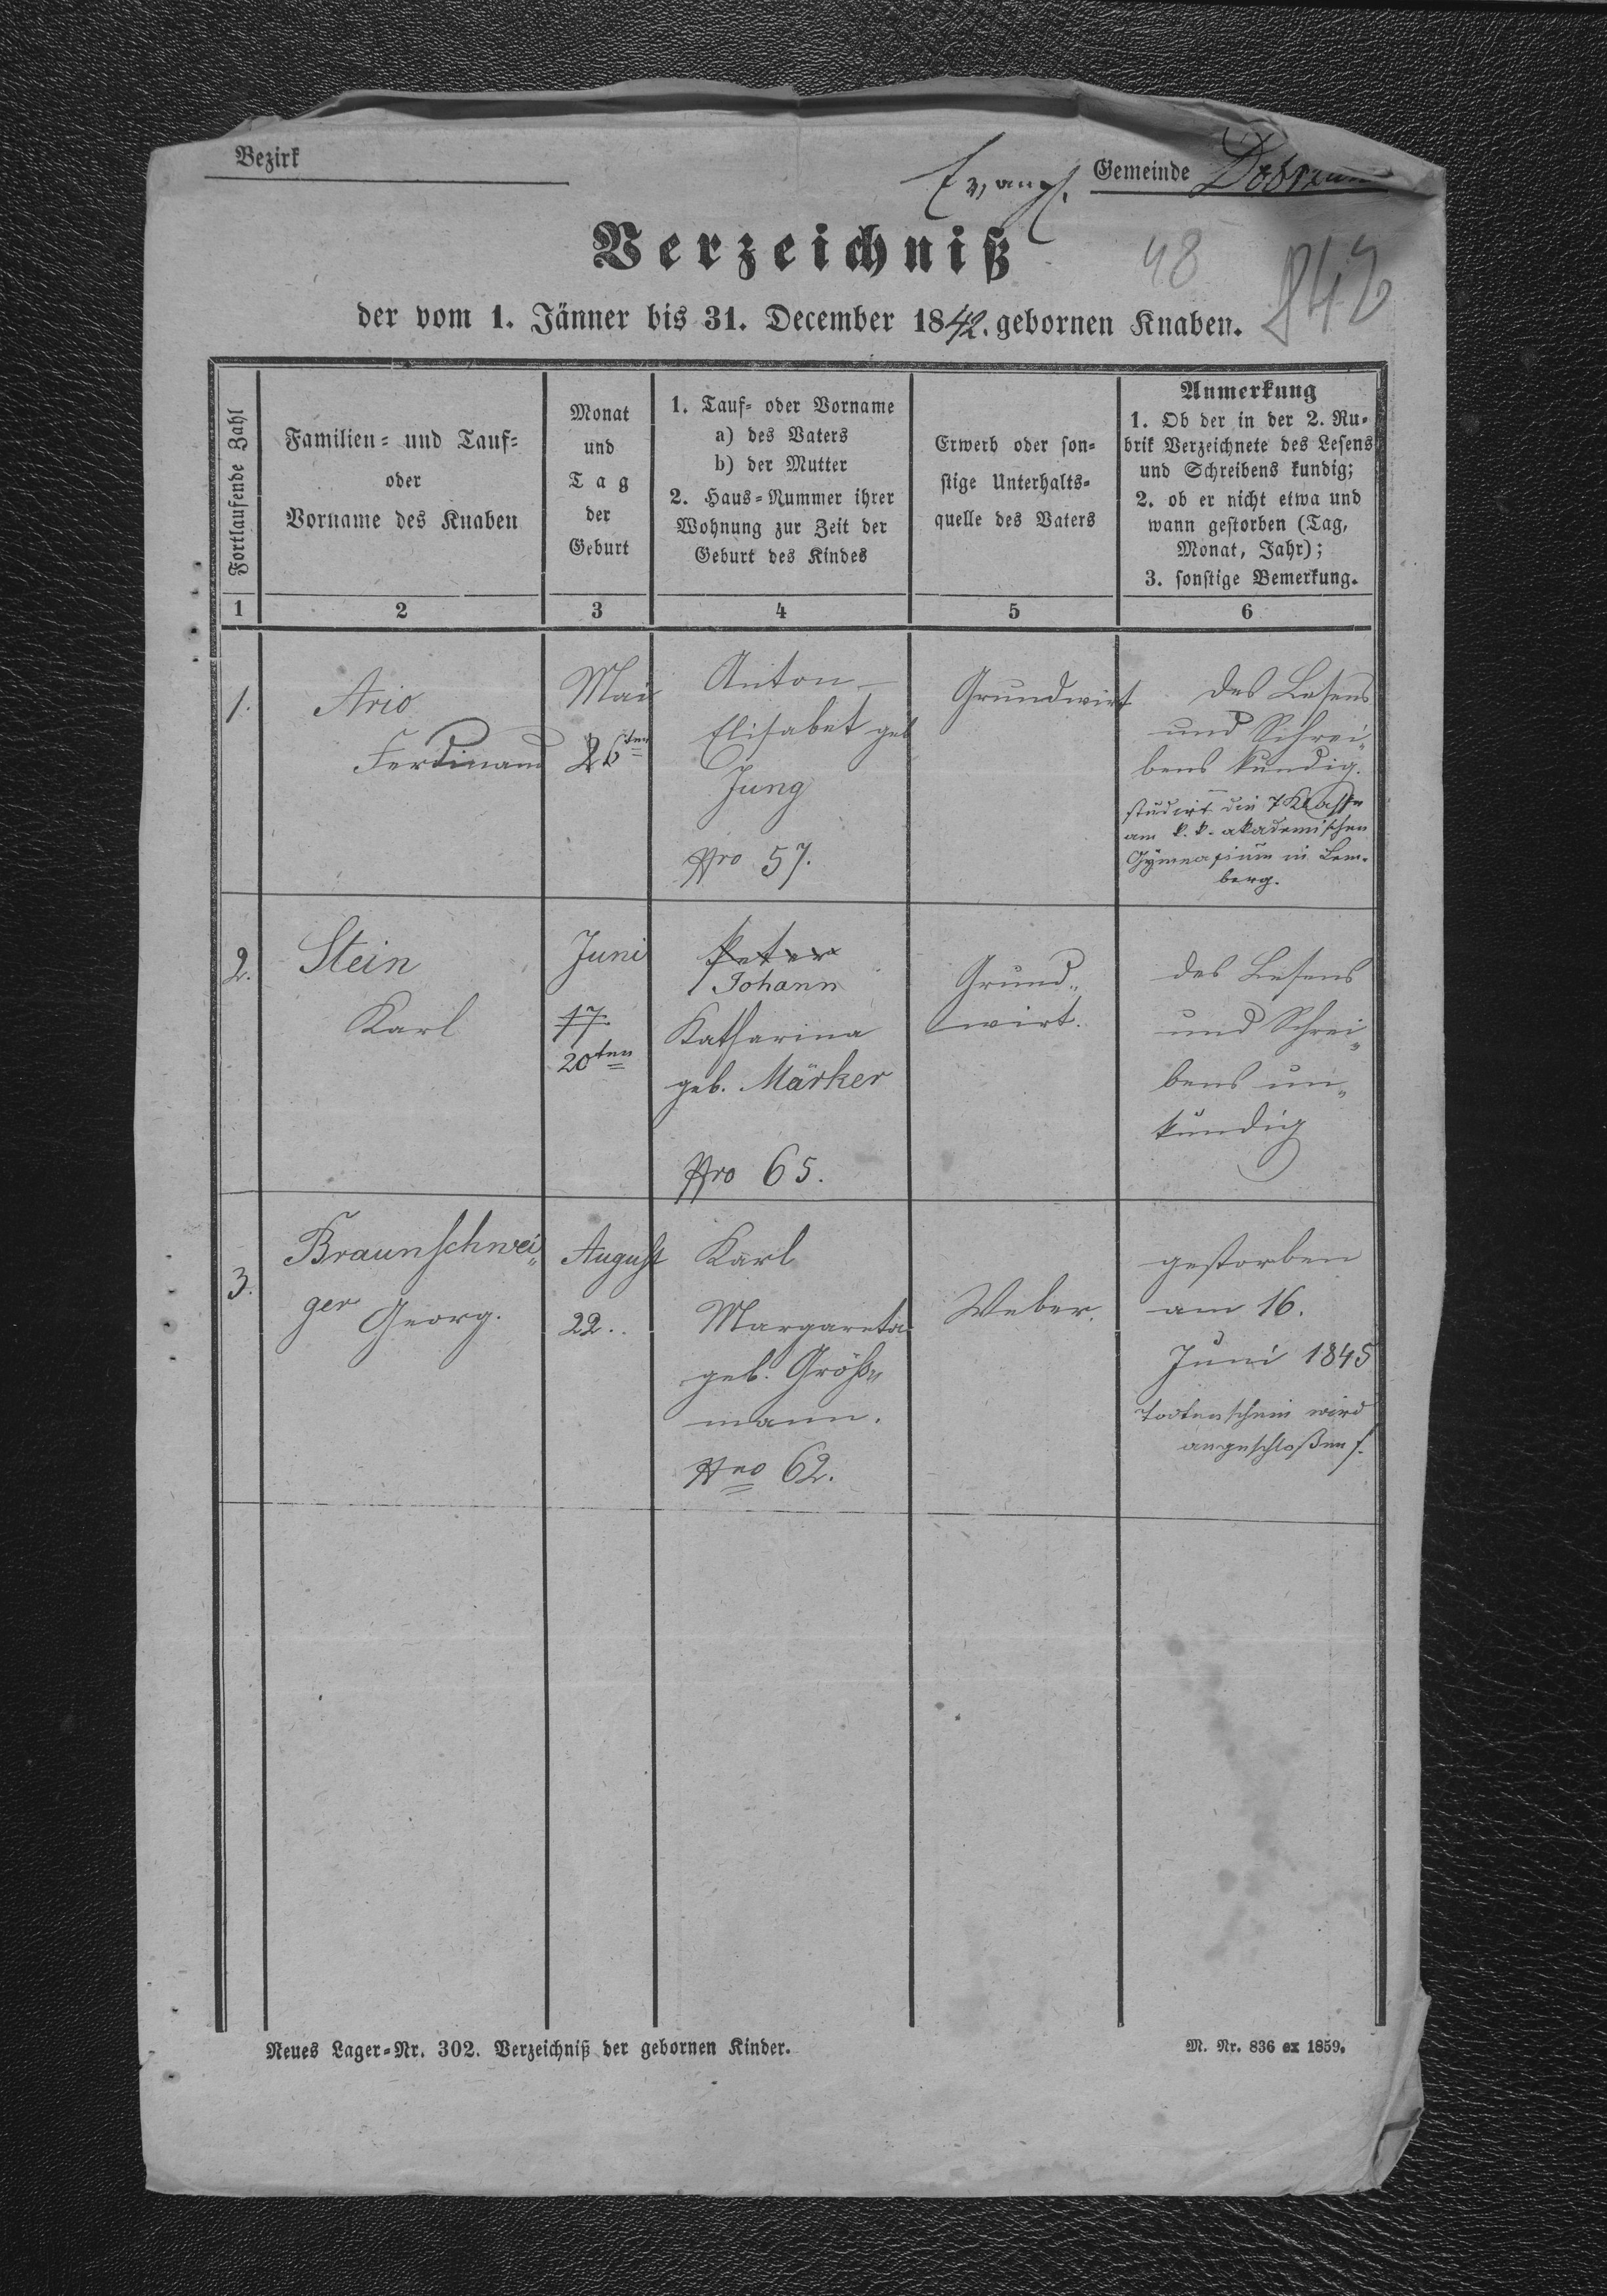 Bezirk
Evangl. Gemeinde
Verzeichniß
48
842
der vom 1. Jänner bis 31. December 1842. gebornen Knaben.
Fortlaufende Zahl
Familien- und Tauf-
oder
Vorname des Knaben
Monat
und
Tag
der
Geburt
1. Tauf- oder Vorname
a) des Vaters
b) der Mutter
2. Haus-Nummer ihrer
Wohnung zur Zeit der
Geburt des Kindes
Erwerb oder son-
stige Unterhalts-
quelle des Vaters
Anmerkung
1. Ob der in der 2. Ru-
brik Verzeichnete des Lesens
und Schreibens kundig;
2. ob er nicht etwa und
wann gestorben (Tag,
Monat, Jahr);
3. sonstige Bemerkung.
1 2 3 4 5 6
1.
Ario
Ferdinand
Mai
26ten
Anton
Elisabet geb
Jung
Nro 57.
Grundwirt
des Lesens
und Schrei„
bens kundig.
studirt die 7 Klasse
am k. k. akademischen
Gymnasium in Lem-
berg.
2.
Stein
Karl
Juni
17
20ten
Peter
Johann
Katharina
geb. Märker
Nro 65.
Grund„
wirt.
des Lesens
und Schrei„
bens un„
kundig
3.
Braunschwei„
ger Georg.
August
22..
Karl
Margareta
geb. Größ„
mann.
Nro 62.
Weber.
gestorben
am 16.
Juni 1845
Todtenschein wird
angeschloßen
Neues Lager-Nr. 302. Verzeichniß der gebornen Kinder.
M. Nr. 836 ex 1859.